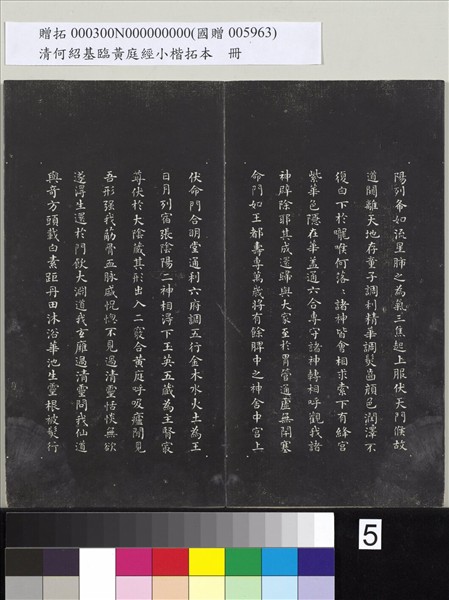 贈拓 000300N000000000(國贈 005963)
清何紹基臨黃庭經小楷拓本 冊
陽列布如流星肺之為氣三焦起上服伏天門候故
道闚離天地存童子調利精華調髮齒顏色潤澤不
復白下於嚨喉何落諸神皆會相求索下有絳宮
紫華色隱在華蓋通六合專守諸神轉相呼觀我諸
神辟除耶其成還歸與大家至於胃管通虛無閉塞
命門如王都壽專萬歲將有餘脾中之神舍中宮上
伏命門合明堂通利六府調五行金木水火土為王
日月列宿張陰陽二神相得下王英五藏為主腎最
尊伏於大陰藏其形出入二竅合黃庭呼吸廬間見
吾形強我筋骨血脈盛恍惚不見過清靈恬惔無欲
遂得生還於門飲大淵道我玄雍過清靈問我仙道
與奇方頭載白素距丹田沐浴華池生靈根被髮行
5